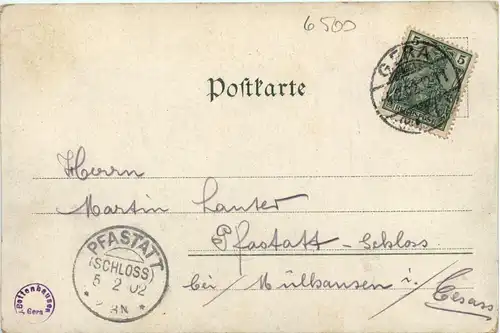 6500
5 5
GERA
Postkarte
Herrn
Martin Lanter
Pfastatt-Schloss
bei Mülhausen i/
Elsass
PFASTATT
(SCHLOSS)
5 2 02
* 2-3N *
Bettenhausen
Gera